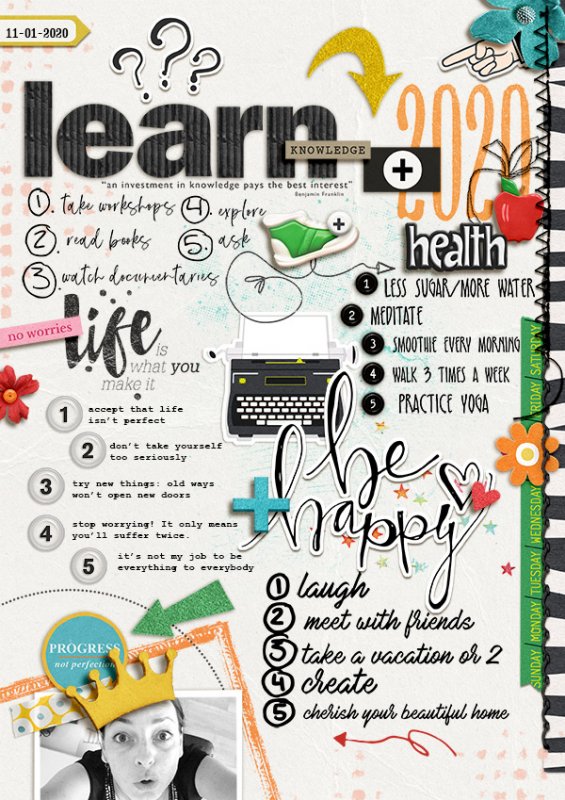 11-01-2020
???
learn
KNOWLEDGE
+
2020
"an investment in knowledge pays the best interest"
Benjamin Franklin
1. take workshops
2. read books
3. watch documentaries
4. explore
5. ask
+
health
1 LESS SUGAR/MORE WATER
2 MEDITATE
3 SMOOTHIE EVERY MORNING
4 WALK 3 TIMES A WEEK
5 PRACTICE YOGA
no worries
life is
what you
make it
1 accept that life
isn't perfect
2 don't take yourself
too seriously
3 try new things: old ways
won't open new doors
4 stop worrying! It only means
you'll suffer twice.
5 it's not my job to be
everything to everybody
be
happy
1 laugh
2 meet with friends
3 take a vacation or 2
4 create
5 cherish your beautiful home
SUNDAY MONDAY TUESDAY WEDNESDAY FRIDAY SATURDAY
PROGRESS
not perfection